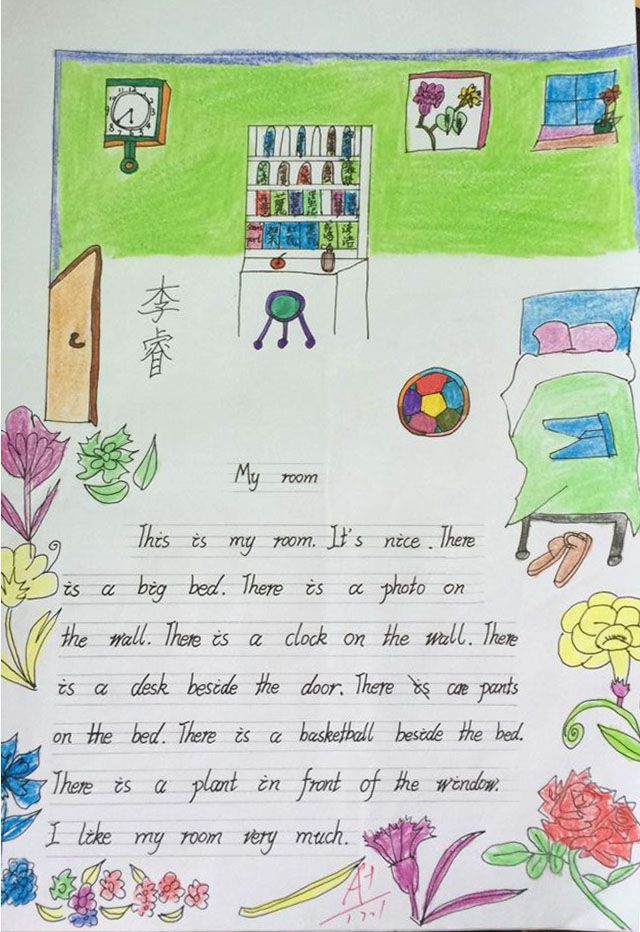 李
睿
My room
This is my room. It's nice. There
is a big bed. There is a photo on
the wall. There is a clock on the wall. There
is a desk beside the door. There is are pants
on the bed. There is a basketball beside the bed.
There is a plant in front of the window.
I like my room very much.
A+